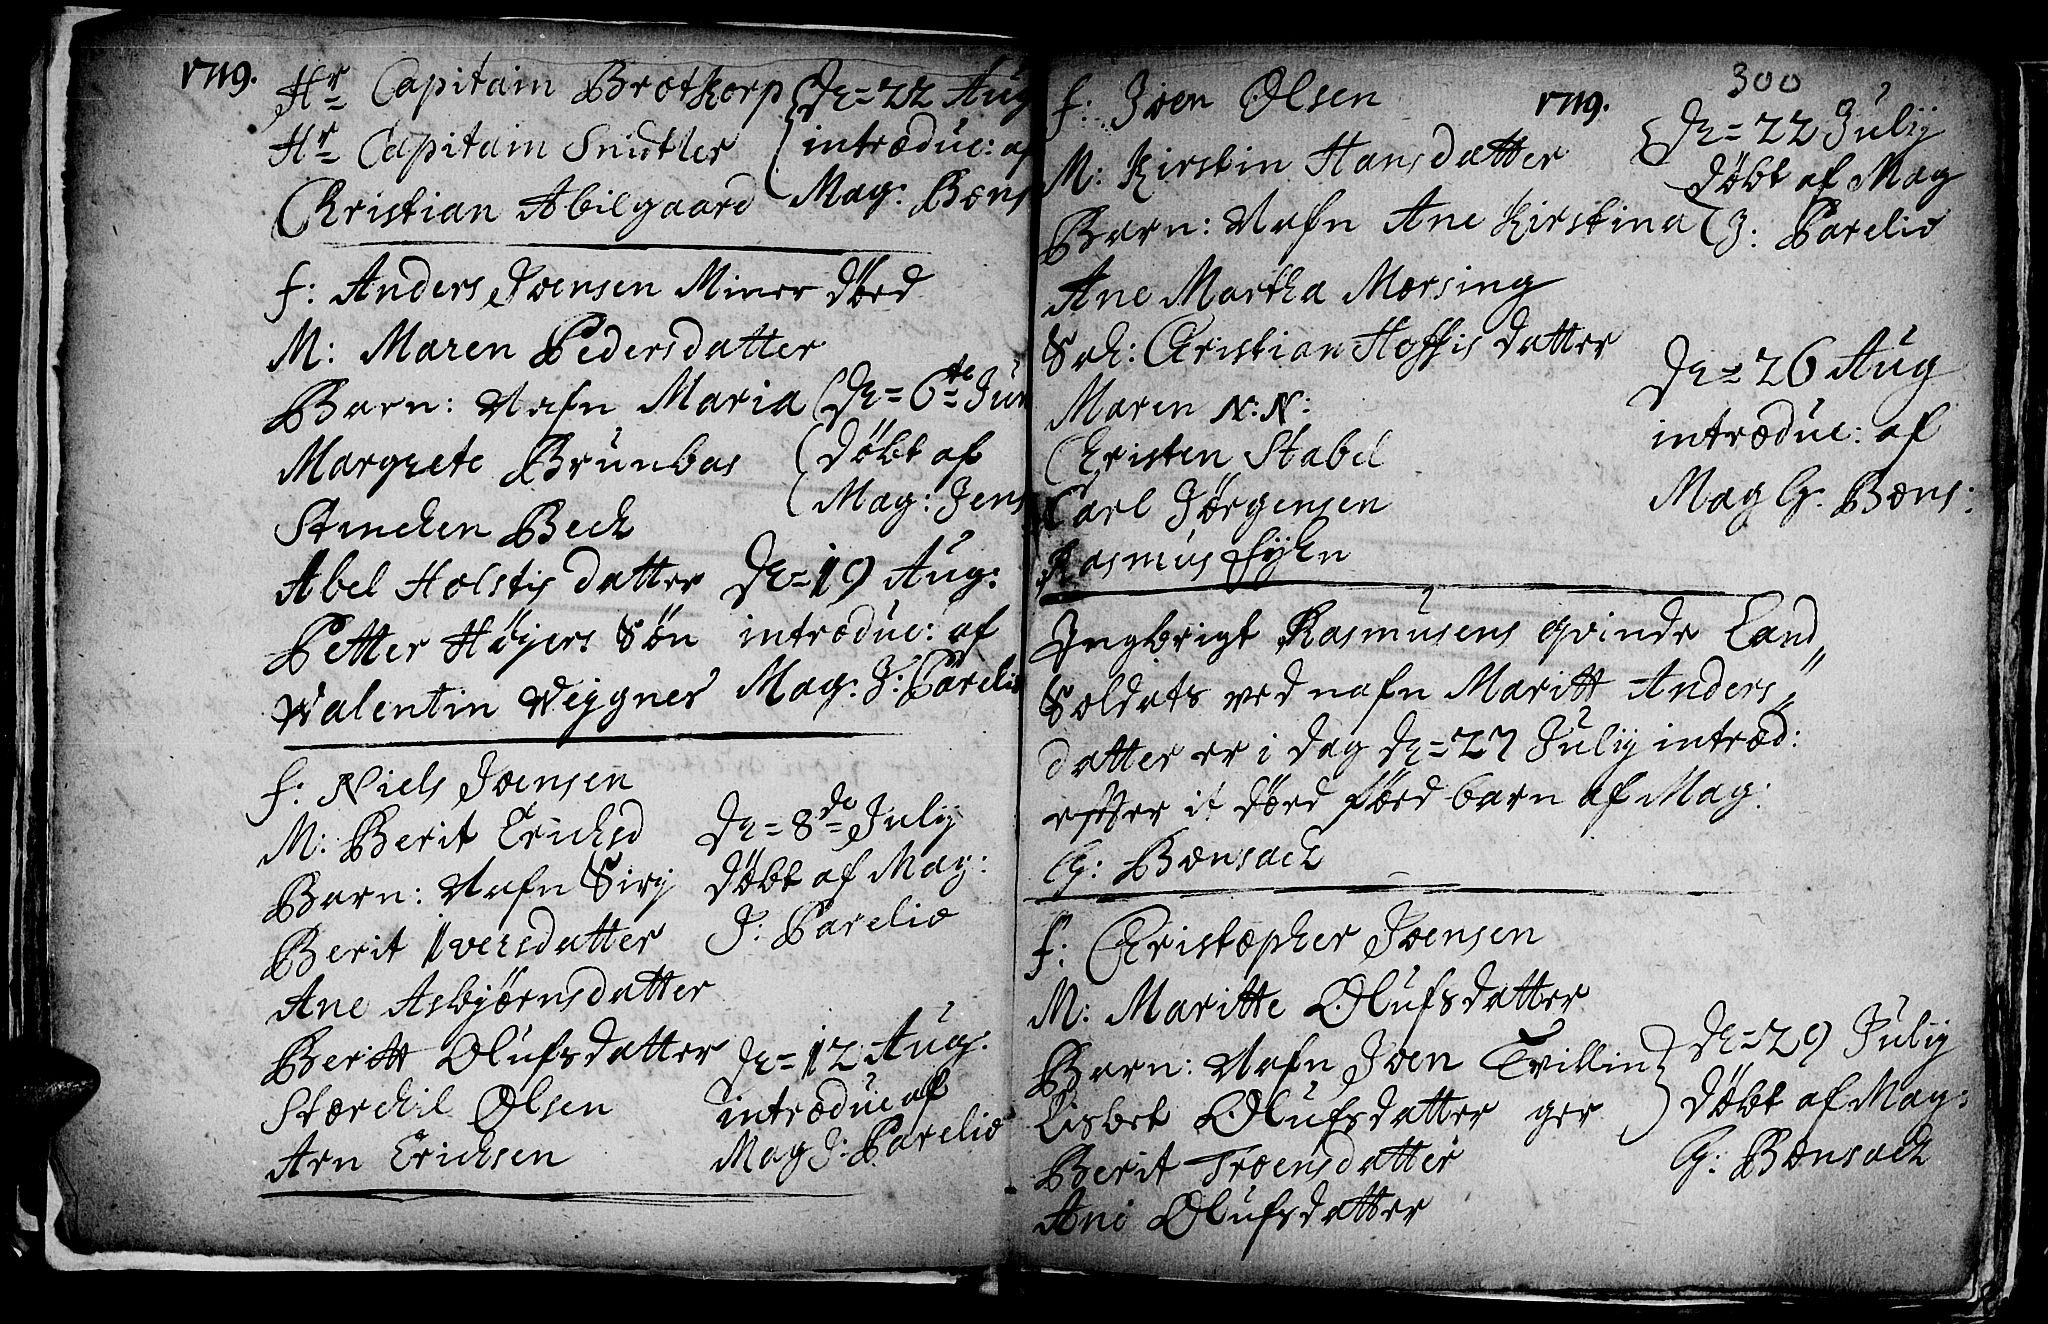 1719.
Hr Capitain Brotkorp
Hr Capitain Snitler
Christian Abilgaard
D= 22 Aug
introduc: af
Mag: Bøns
f: Anders Joensen Miner død
M: Maren Pedersdatter
Barn: Nafn Maria
Margrete Brünbas
Stinchen Bech
Abel Holstis datter
Petter Høyers Søn
Valentin Veygner
D= 6te Jun
døbt af
Mag: Jens
D= 19 Aug:
introduc: af
Mag: J: Parelio
f: Niels Joensen
M: Berit Erichsd
Barn: Nafn Sirj
Berit Iversdatter
Ane Asbjørnsdatter
Beritt Olufsdatter
Storchil Olsen
Arn Erichsen
D= 8de Julij
døbt af Mag:
J: Parelio
D= 12 Aug:
introduc af
Mag J: Parelio
300
1719.
f: Joen Olsen
M: Kirstin Hansdatter
Barn: Nafn Ane Kirstina
Ane Martha Morsing
Sch: Christian Hoffis datter
Maren N: N:
Christen Stabel
Carl Jørgensen
Rasmus Fyhn
D= 22 Julij
døbt af Mag
J: Parelio
D= 26 Aug
introduc: af
Mag G. Bøns:
Ingbrigt Rasmusens qvinde Land„
Soldats ved nafn Maritt Anders„
datter er i dag D= 27 Julij introd:
effter it død fød barn af Mag:
G: Bønsach
f: Christopher Joensen
M: Maritte Olufsdatter
Barn: Nafn Joen Tvillin
Lisbet Olufsdatter ger
Berit Troensdatter
Ane Olufsdatter
D= 29 Julij
døbt af Mag:
G: Bønsach